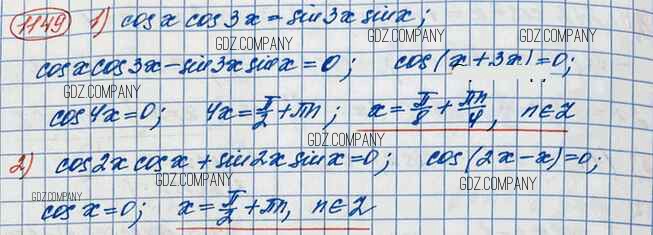 1149 1) cos x cos 3x = sin 3x sin x;
GDZ.COMPANY GDZ.COMPANY
cos x cos 3x − sin 3x sin x = 0; cos(x + 3x) = 0;
GDZ.COMPANY GDZ.COMPANY
cos 4x = 0; 4x = π/2 + πn; x = π/8 + πn/4, n ∈ Z
GDZ.COMPANY
2) cos 2x cos x + sin 2x sin x = 0; cos(2x − x) = 0;
GDZ.COMPANY GDZ.COMPANY GDZ.COMPANY
cos x = 0; x = π/2 + πn, n ∈ Z